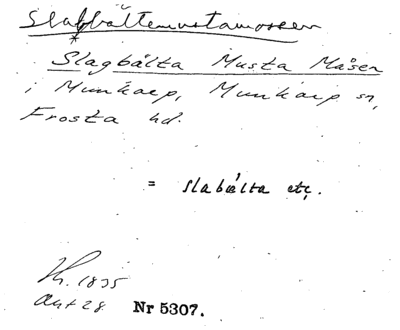 Slagbältemustamossen
*
Slagbälta Musta Måsen
i Munkarp, Munkarp sn,
Frosta hd.
= slabälta etc.
1835
Akt 28 Nr 5307.